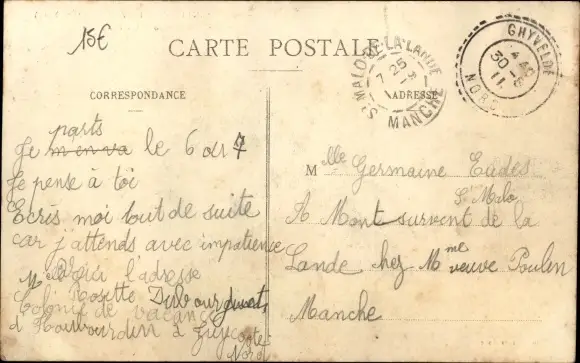 15€
CARTE POSTALE
ST MALO-DE-LA-LANDE
7 25
MANCHE
GHYVELDE
30
11
NORD
CORRESPONDANCE
ADRESSE
parts
Je m'en va le 6 ou 7
Je pense à toi
Ecris moi tout de suite
car j'attends avec impatience
Voici l'adresse
Mlle Rosette
Colonie de vacances
d'Haubourdin à Zuydcoote
Nord
Mlle Germaine Eudes
St Malo
A Mont survent de la
Lande chez Mme veuve Poulin
Manche